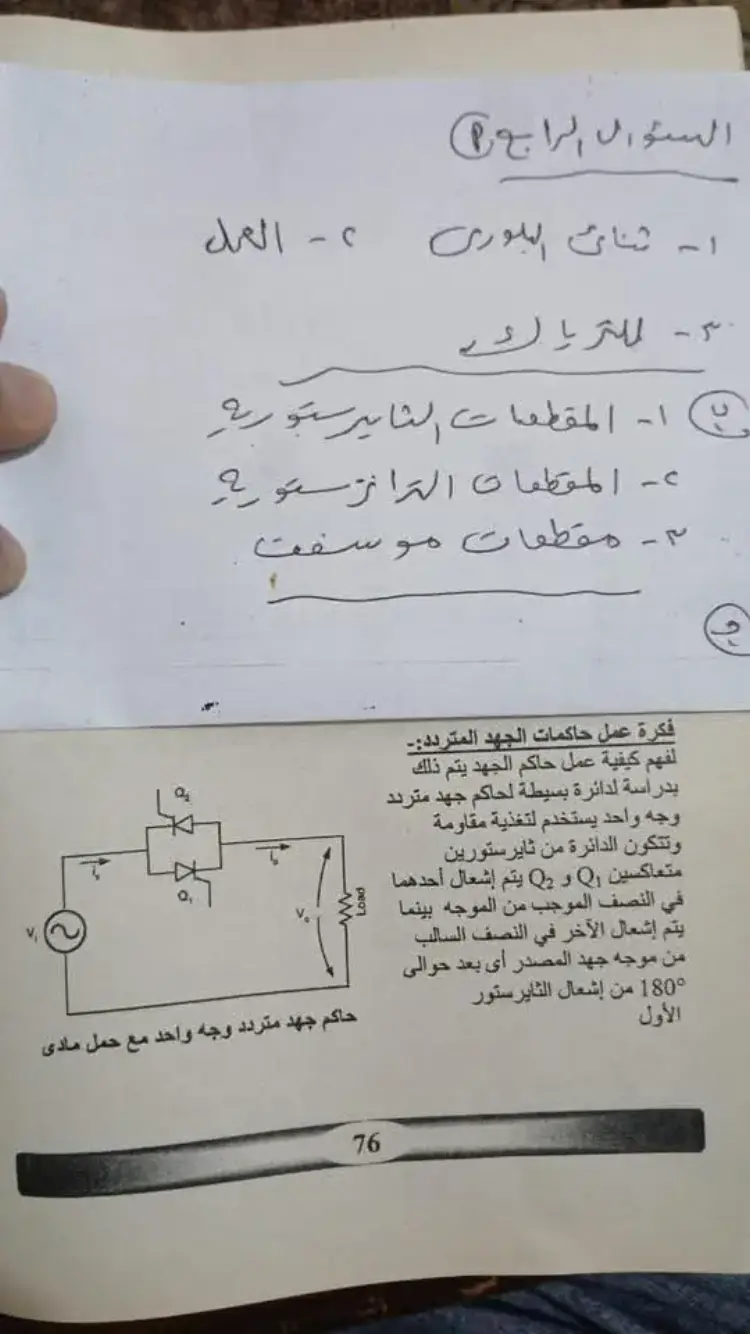 السؤال الرابع (P)
١- ثنائى البلورى ٢- الحمل
٣- للترياك
(ب) ١- المقطعات الثايرستوريه
٢- المقطعات الترانزستوريه
٣- مقطعات موسفت
(ج)
فكرة عمل حاكمات الجهد المتردد:-
لفهم كيفية عمل حاكم الجهد يتم ذلك
بدراسة لدائرة بسيطة لحاكم جهد متردد
وجه واحد يستخدم لتغذية مقاومة
وتتكون الدائرة من ثايرستورين
متعاكسين Q1 و Q2 يتم إشعال أحدهما
في النصف الموجب من الموجه بينما
يتم إشعال الآخر في النصف السالب
من موجه جهد المصدر أى بعد حوالى
180° من إشعال الثايرستور
الأول
Q2
is
io
Q1
Vi
Vo
Load
حاكم جهد متردد وجه واحد مع حمل مادى
76